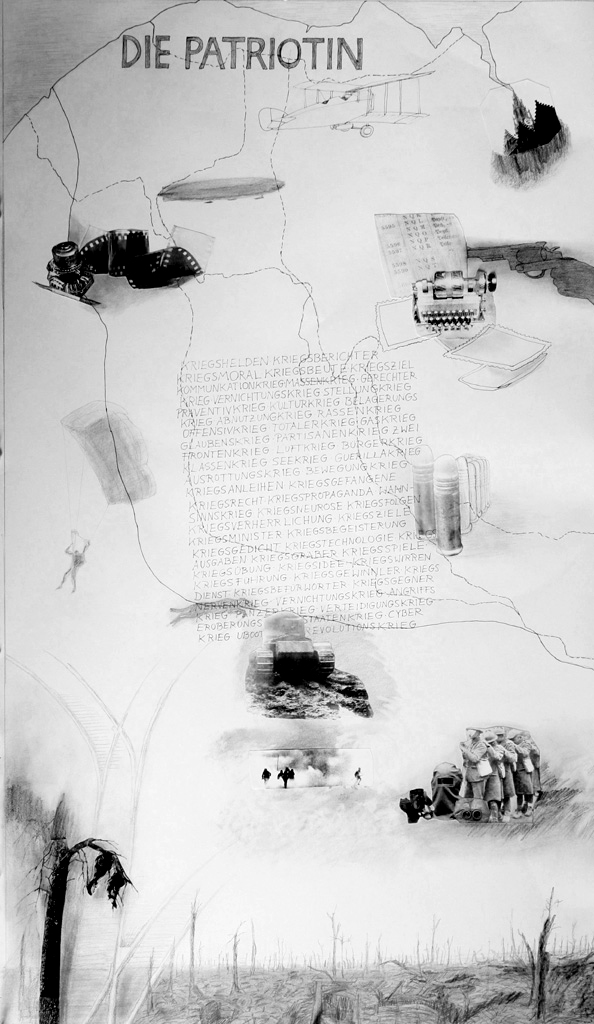 DIE PATRIOTIN
KRIEGSHELDEN KRIEGSBERICHTER
KRIEGSMORAL KRIEGSBEUTE KRIEGSZIEL
KOMMUNIKATIONKRIEG MASSENKRIEG GERECHTER
KRIEG VERNICHTUNGSKRIEG STELLUNGSKRIEG
PRÄVENTIVKRIEG KULTURKRIEG BELAGERUNGS
KRIEG ABNUTZUNGKRIEG RASSENKRIEG
OFFENSIVKRIEG TOTALER KRIEG GASKRIEG
GLAUBENSKRIEG PARTISANENKRIEG ZWEI
FRONTENKRIEG LUFTKRIEG BÜRGERKRIEG
KLASSENKRIEG SEEKRIEG GUERILLAKRIEG
AUSROTTUNGSKRIEG BEWEGUNGKRIEG
KRIEGSANLEIHEN KRIEGSGEFANGENE
KRIEGSRECHT KRIEGSPROPAGANDA WAHN
SINNSKRIEG KRIEGSNEUROSE KRIEGSFOLGEN
KRIEGSVERHERRLICHUNG KRIEGSZIELE
KRIEGSMINISTER KRIEGSBEGEISTERUNG
KRIEGSGEDICHT KRIEGSTECHNOLOGIE
AUSGABEN KRIEGSGRÄBER KRIEGSSPIELE
KRIEGSÜBUNG KRIEGSIDEE KRIEGSWIRREN
KRIEGSFÜHRUNG KRIEGSGEWINNLER KRIEGS
DIENST KRIEGSBEFÜRWORTER KRIEGSGEGNER
NERVENKRIEG VERNICHTUNGSKRIEG ANGRIFFS
KRIEG PANZERKRIEG VERTEIDIGUNGSKRIEG
EROBERUNGS STAATENKRIEG CYBER
KRIEG UBOOT REVOLUTIONSKRIEG